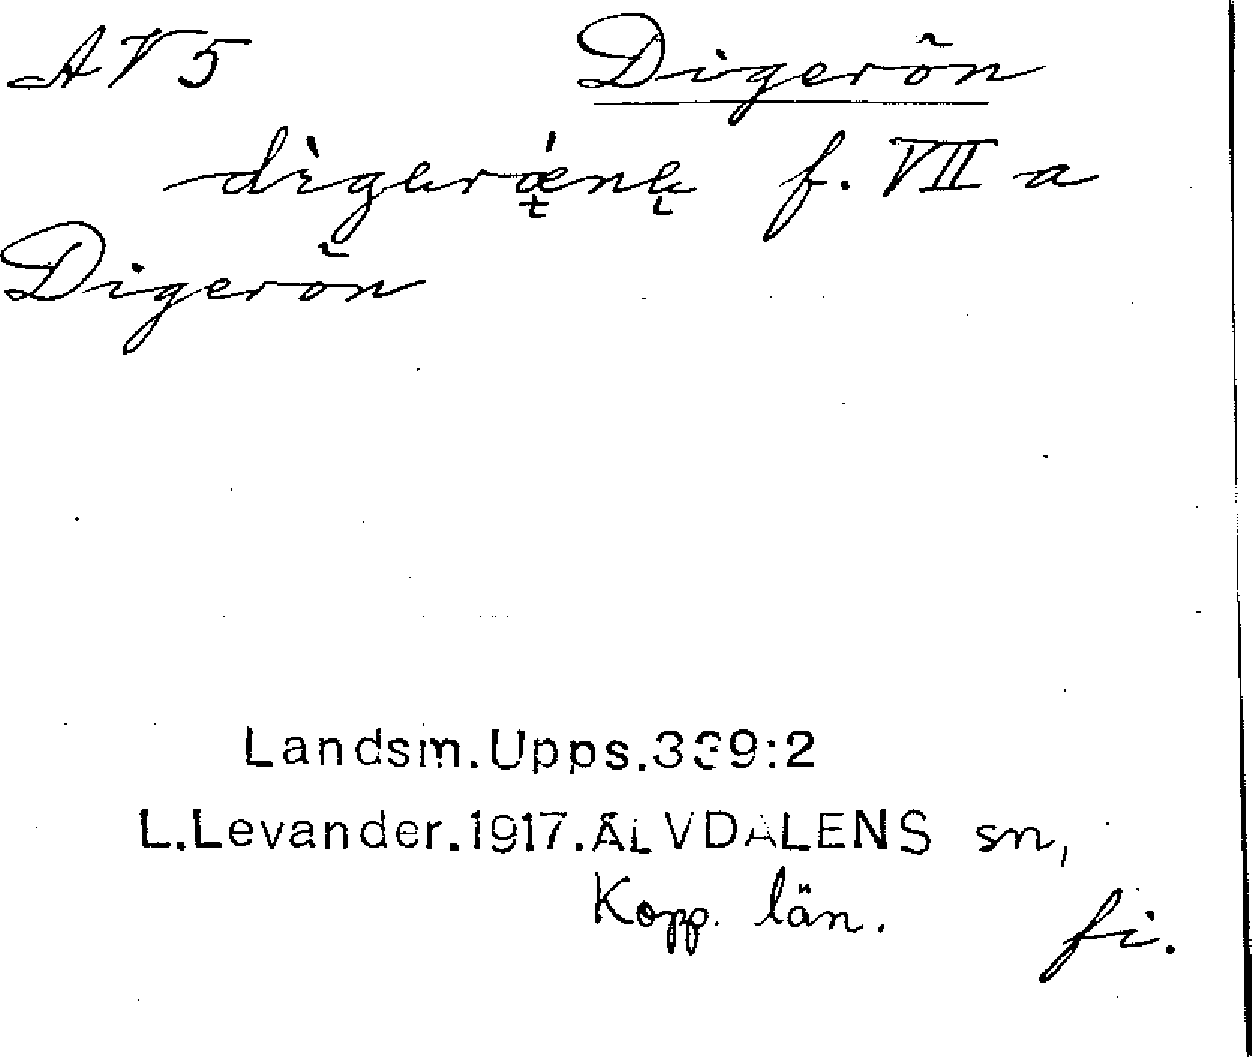 AV5 Digerön
f. VII a
Digerön
Landsm.Upps.339:2
L.Levander.1917.ÄLVDALENS sn,
Kopp. län.
fi.